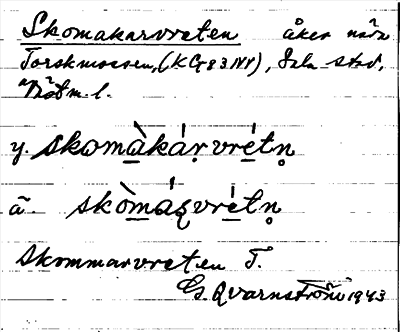 Skomakarvreten åker nära
Torskmossen, (KG 83 NV), Sala stad,
Västm. l.
y. skomàkáṛvrétn̥
ä. skòmáqvrétn̥
Skommarvreten T.
G. Qvarnström 1943